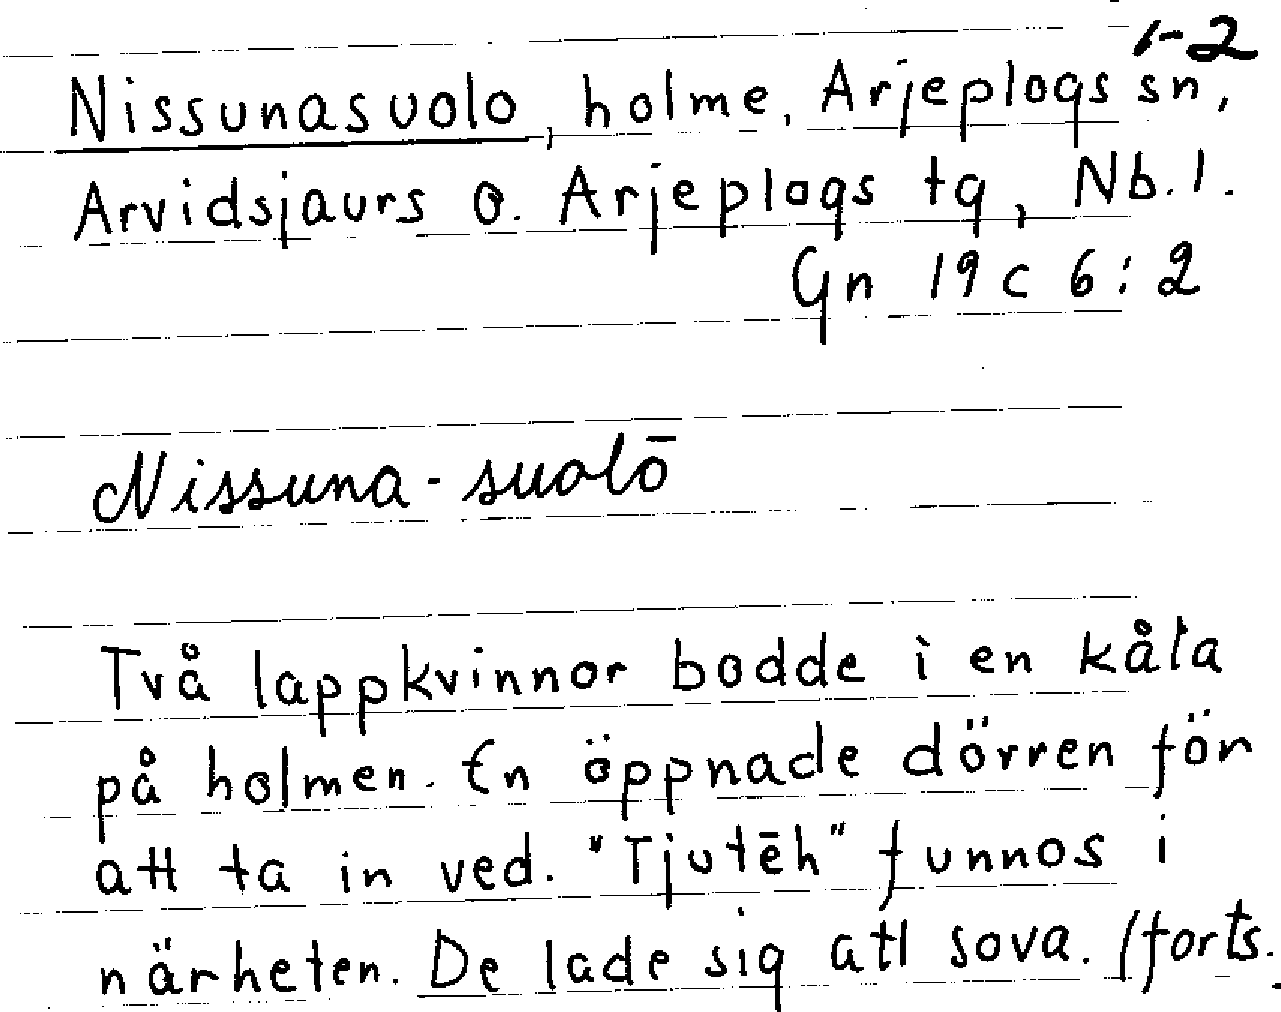 1-2
Nissunasuolo, holme, Arjeplogs sn,
Arvidsjaurs o. Arjeplogs tg, Nb. l.
Gn 19 c 6:2
Nissuna-suolō
Två lappkvinnor bodde i en kåta
på holmen. En öppnade dörren för
att ta in ved. "Tjutēh" funnos i
närheten. De lade sig att sova. (forts.